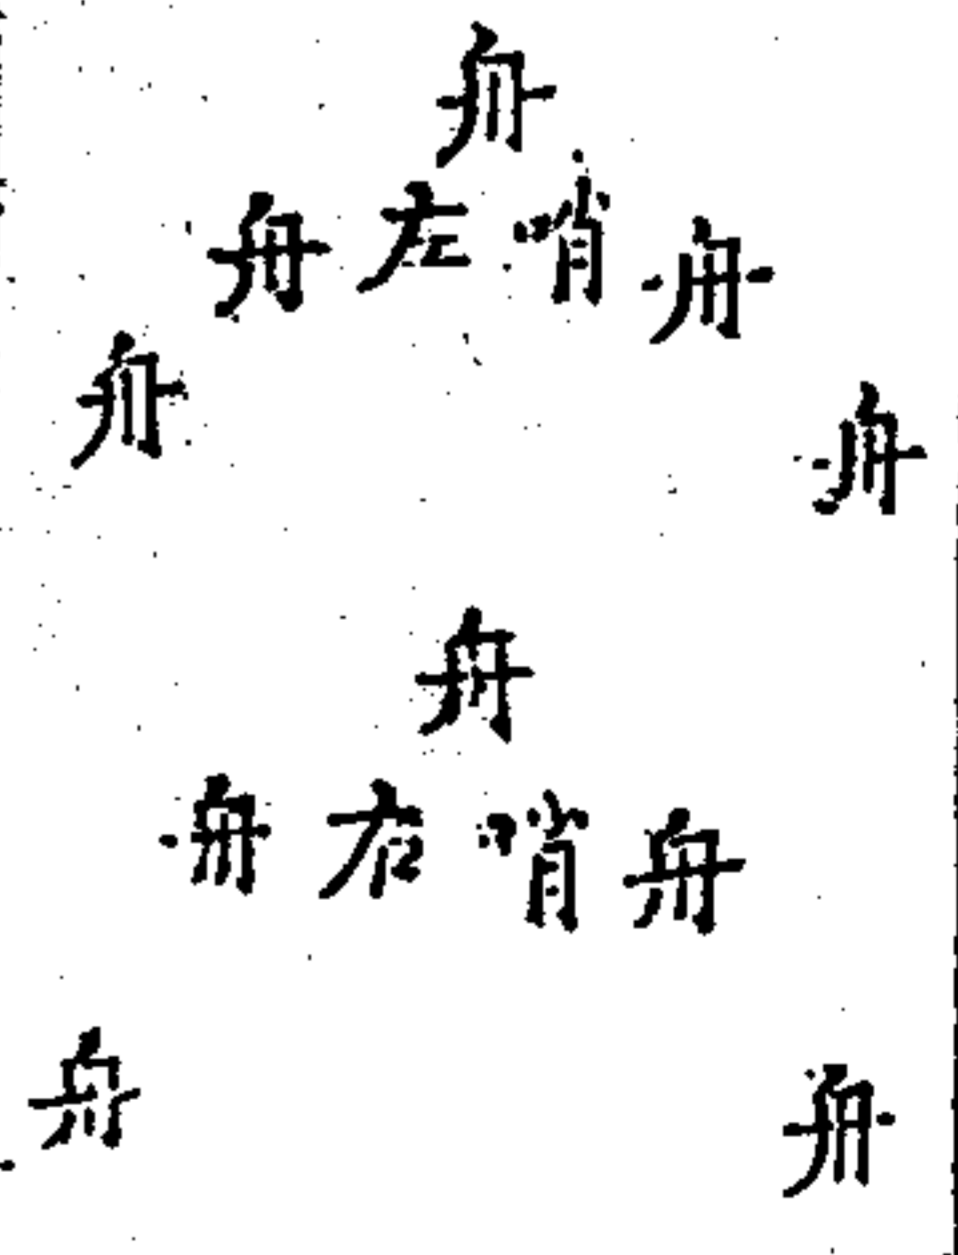 舟
舟左哨舟
舟 舟
舟
舟右哨舟
舟 舟